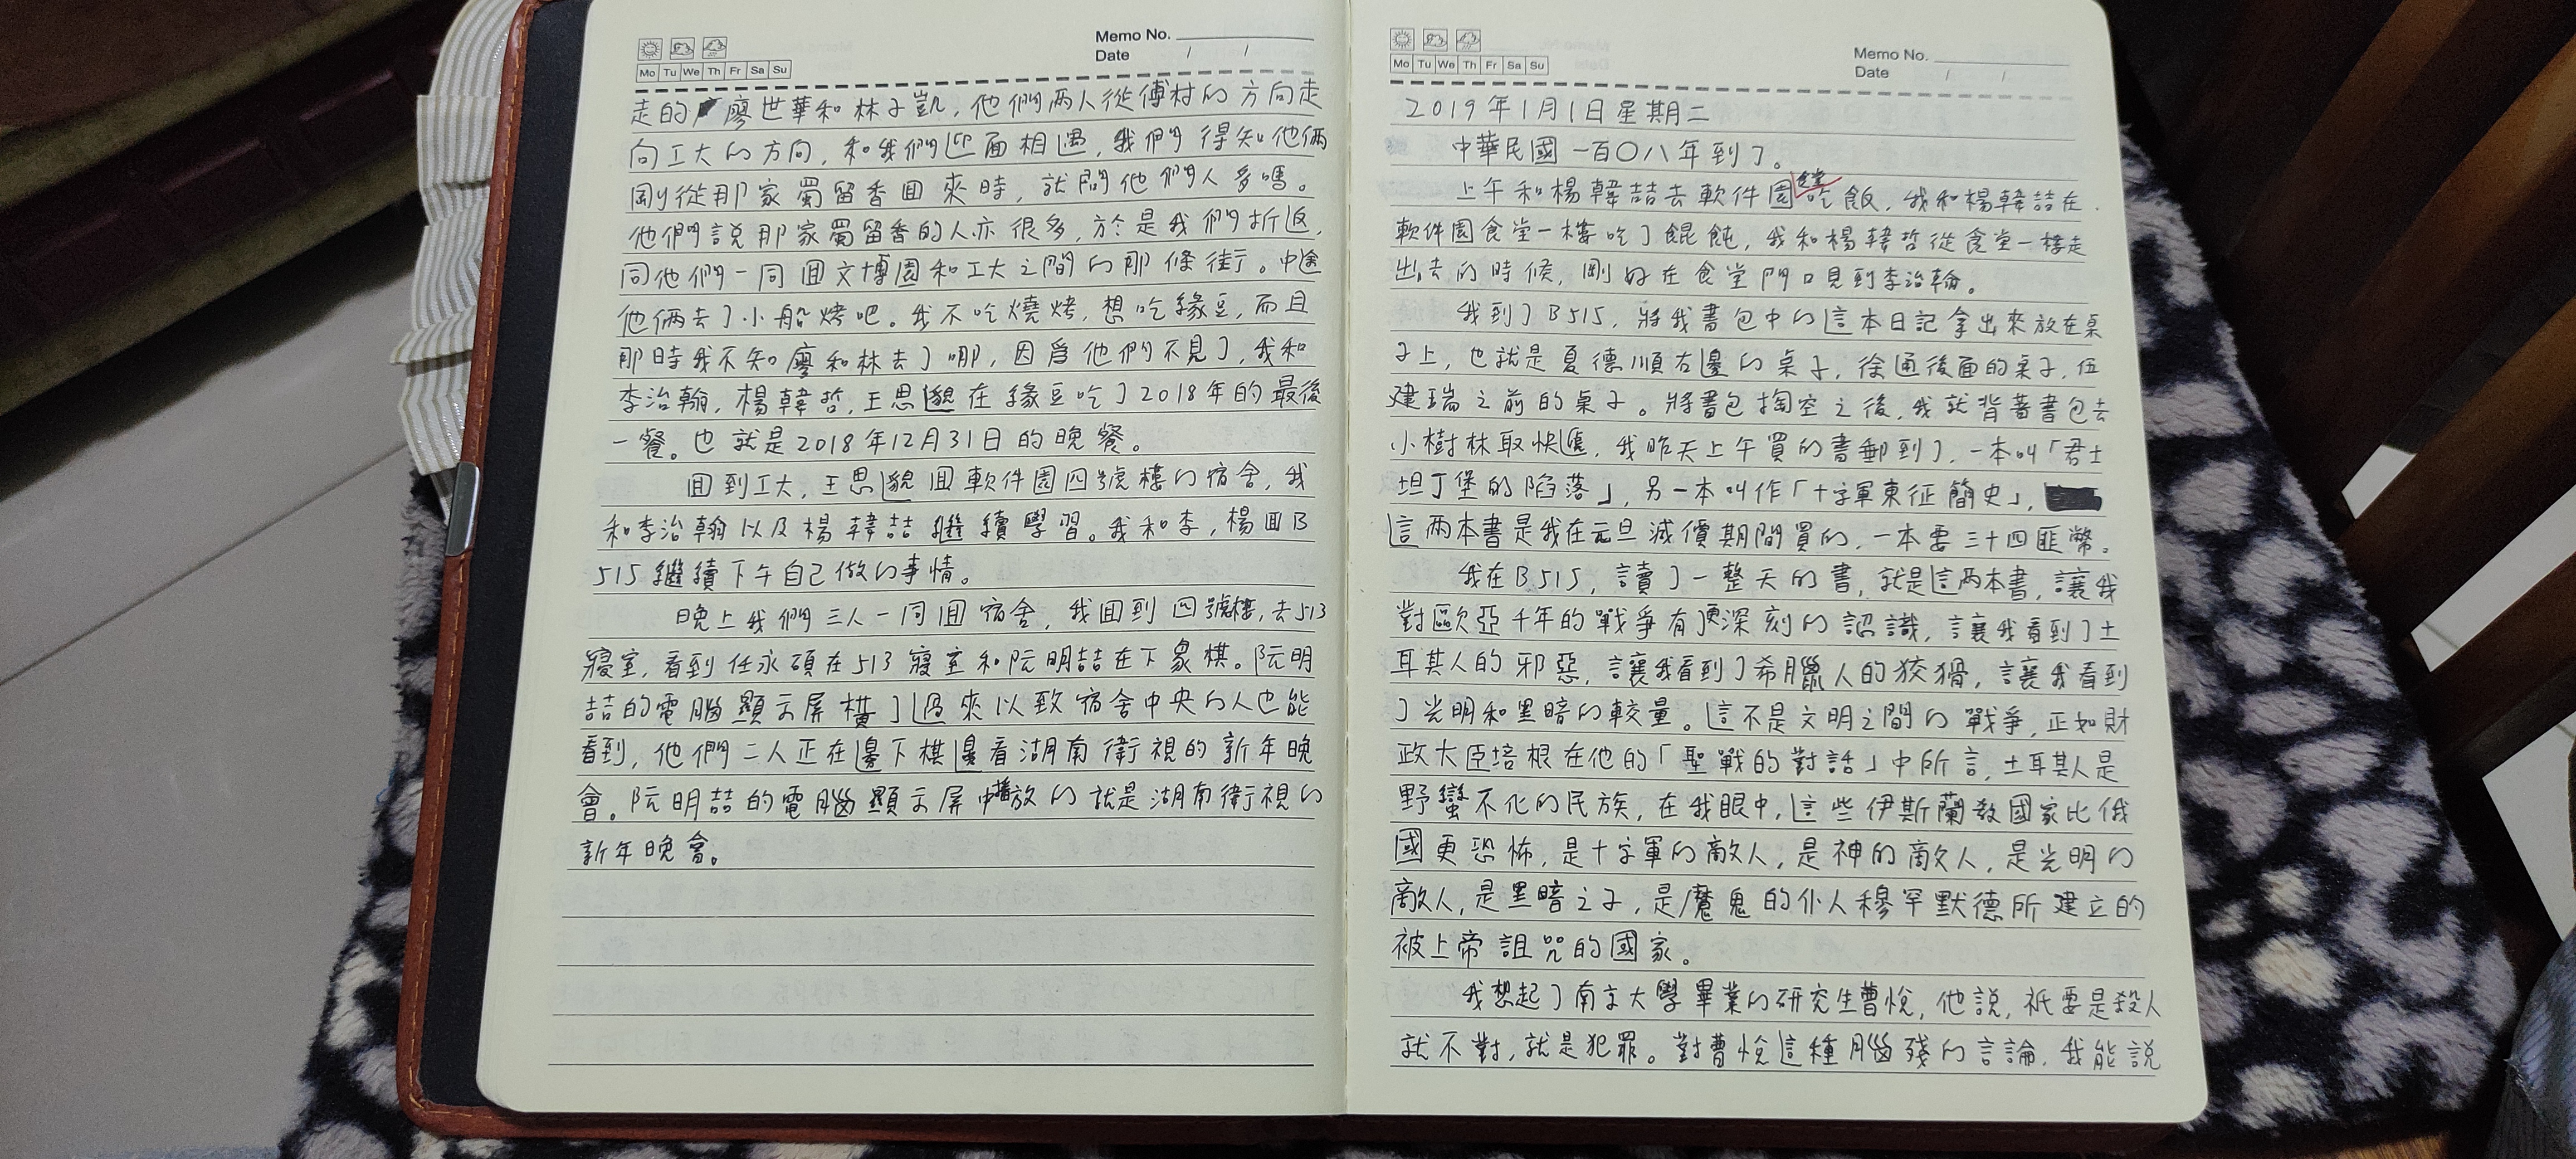 Memo No.
Date / /
Mo Tu We Th Fr Sa Su
走的廖世華和林子凱，他們兩人從傅村的方向走
向工大的方向，和我們迎面相遇，我們得知他倆
剛從那家蜀留香回來時，就問他們人多嗎。
他們說那家蜀留香的人亦很多，於是我們折返，
同他們一同回文博園和工大之間的那條街。中途
他倆去了小船烤吧。我不吃燒烤，想吃緣豆，而且
那時我不知廖和林去了哪，因爲他們不見了，我和
李治翰，楊韓哲，王思邈在緣豆吃了2018年的最後
一餐。也就是2018年12月31日的晚餐。
回到工大，王思邈回軟件園四號樓的宿舍，我
和李治翰以及楊韓喆繼續學習。我和李，楊回B
515繼續下午自己做的事情。
晚上我們三人一同回宿舍，我回到四號樓，去513
寢室，看到任永碩在513寢室和阮明喆在下象棋。阮明
喆的電腦顯示屏橫了過來以致宿舍中央的人也能
看到，他們二人正在邊下棋邊看湖南衛視的新年晚
會。阮明喆的電腦顯示屏中播放的就是湖南衛視的
新年晚會。
Memo No.
Date / /
Mo Tu We Th Fr Sa Su
2019年1月1日星期二
中華民國一百〇八年到了。
上午和楊韓喆去軟件園食堂吃飯，我和楊韓喆在
軟件園食堂一樓吃了餛飩，我和楊韓哲從食堂一樓走
出去的時候，剛好在食堂門口見到李治翰。
我到了B515，將我書包中的這本日記拿出來放在桌
子上，也就是夏德順右邊的桌子，徐通後面的桌子，伍
建瑞之前的桌子。將書包掏空之後，我就背著書包去
小樹林取快遞，我昨天上午買的書郵到了，一本叫「君士
坦丁堡的陷落」，另一本叫作「十字軍東征簡史」，
這兩本書是我在元旦減價期間買的，一本要三十四匪幣。
我在B515，讀了一整天的書，就是這兩本書，讓我
對歐亞千年的戰爭有更深刻的認識，讓我看到了土
耳其人的邪惡，讓我看到了希臘人的狡猾，讓我看到
了光明和黑暗的較量。這不是文明之間的戰爭，正如財
政大臣培根在他的「聖戰的對話」中所言，土耳其人是
野蠻不化的民族，在我眼中，這些伊斯蘭教國家比俄
國更恐怖，是十字軍的敵人，是神的敵人，是光明的
敵人，是黑暗之子，是魔鬼的仆人穆罕默德所建立的
被上帝詛咒的國家。
我想起了南京大學畢業的研究生曹悅，他說，祇要是殺人
就不對，就是犯罪。對曹悅這種腦殘的言論，我能說